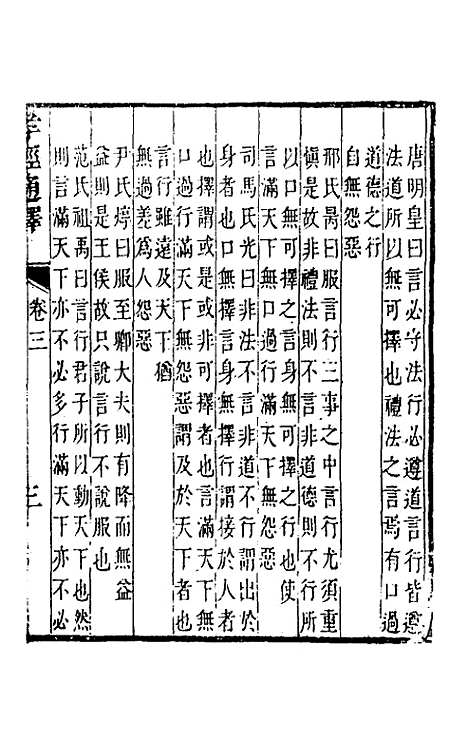 唐明皇曰言必守法行必遵道言行皆遵
法道所以無可擇也禮法之言焉有口過
道德之行
自無怨惡
邢氏昺曰服言行三事之中言行尤須重
愼是故非禮法則不言非道德則不行所
以口無可擇之言身無可擇之行也使
言滿天下無口過行滿天下無怨惡
司馬氏光曰非法不言非道不行謂出於
身者也口無擇言身無擇行謂接於人者
也擇謂或是或非可擇者也言滿天下無
口過行滿天下無怨惡謂及於天下者也
言行雖遠及天下猶
無過差為人怨惡
尹氏焞曰服至卿大夫則有降而無益
益則是王侯故只說言行不說服也
范氏祖禹曰言行君子所以動天下也然
則言滿天下亦不必多行滿天下亦不必
孝經通釋
卷三
三